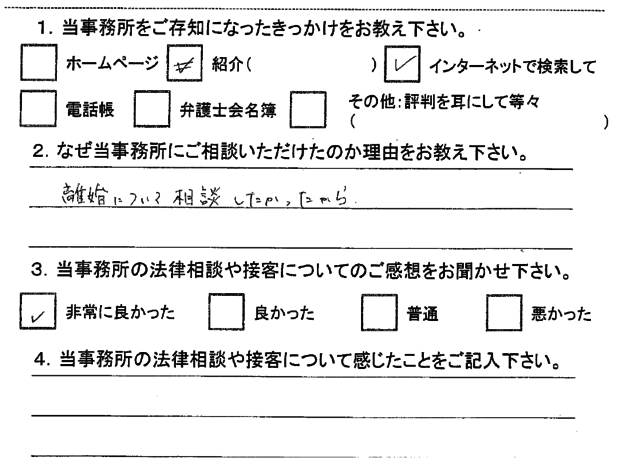 1. 当事務所をご存知になったきっかけをお教え下さい。
ホームページ 紹介( ) ✓ インターネットで検索して
電話帳 弁護士会名簿 その他:評判を耳にして等々
( )
2. なぜ当事務所にご相談いただけたのか理由をお教え下さい。
離婚について相談したかったから.
3. 当事務所の法律相談や接客についてのご感想をお聞かせ下さい。
✓ 非常に良かった 良かった 普通 悪かった
4. 当事務所の法律相談や接客について感じたことをご記入下さい。